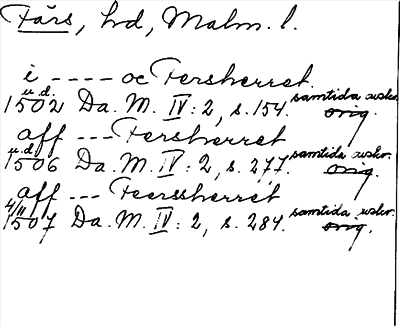 Färs, hd, Malm. l.
i ---- oc Fersherret.
u.d. samtida avskr.
1502 Da. M. IV: 2, s. 154. orig.
aff --- Fersherret
u.d. samtida avskr.
1506 Da. M. IV: 2, s. 277. orig.
aff --- Feerssherret
4/11 samtida avskr.
1507 Da. M. IV: 2, s. 284. orig.